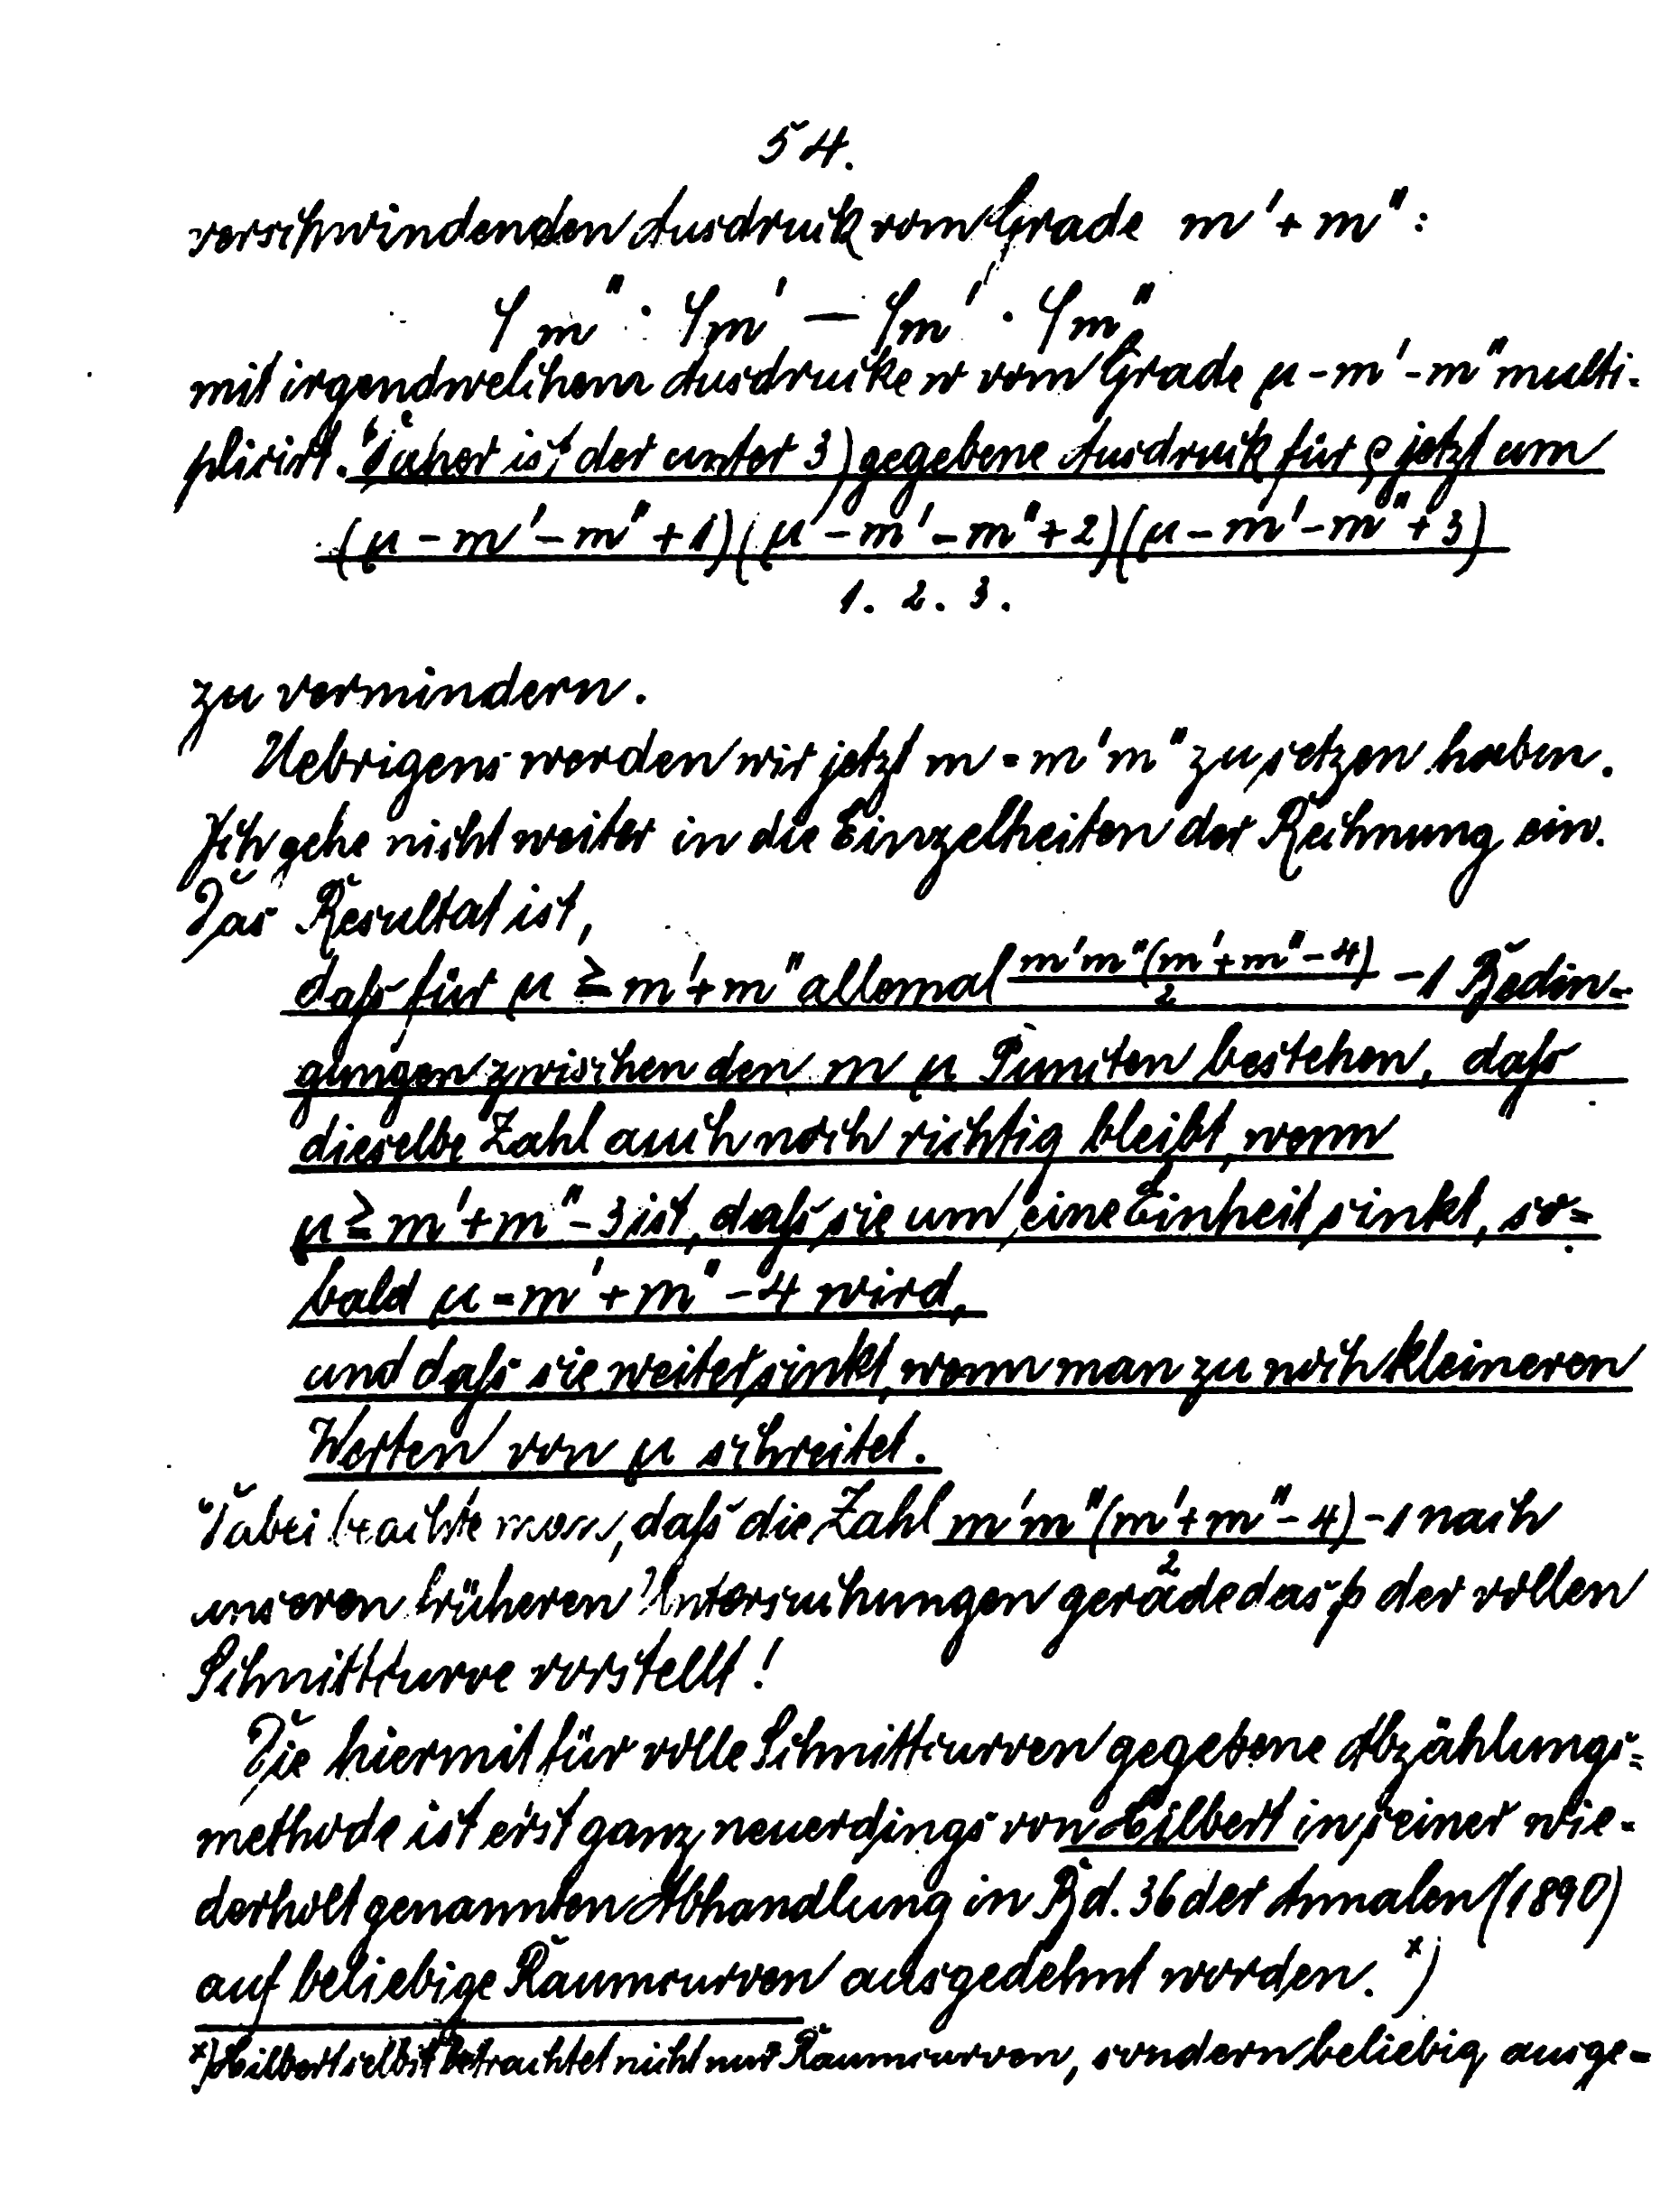 54.
verschwindenden Ausdruck vom Grade m' + m'' :
φm'' · φm' — φm' · φm''
mit irgendwelchem Ausdrucke w vom Grade μ - m' - m'' multi-
plicirt. Daher ist der unter 3) gegebene Ausdruck für ρ jetzt um
(μ - m' - m'' + 1)(μ - m' - m'' + 2)(μ - m' - m'' + 3)
1. 2. 3.
zu vermindern.
Uebrigens werden wir jetzt m = m'm'' zu setzen haben.
Ich gehe nicht weiter in die Einzelheiten der Rechnung ein.
Das Resultat ist,
daß für μ ≥ m' + m'' allemal m'm''(m' + m'' - 4)/2 - 1 Bedin-
gungen zwischen den m μ Puncten bestehen, daß
dieselbe Zahl auch noch richtig bleibt, wenn
μ ≥ m' + m'' - 3 ist, daß sie um eine Einheit sinkt, so-
bald μ = m' + m'' - 4 wird,
und daß sie weiter sinkt, wenn man zu noch kleineren
Werten von μ schreitet.
Dabei beachte man, daß die Zahl m'm''(m' + m'' - 4)/2 - 1 nach
unseren früheren Untersuchungen gerade das p der vollen
Schnittcurve vorstellt!
Die hiermit für volle Schnittcurven gegebene Abzählungs-
methode ist erst ganz neuerdings von Hilbert in seiner wie-
derholt genannten Abhandlung in Bd. 36 der Annalen (1890)
auf beliebige Raumcurven ausgedehnt worden. x)
x) Hilbert selbst betrachtet nicht nur Raumcurven, sondern beliebig ausge-